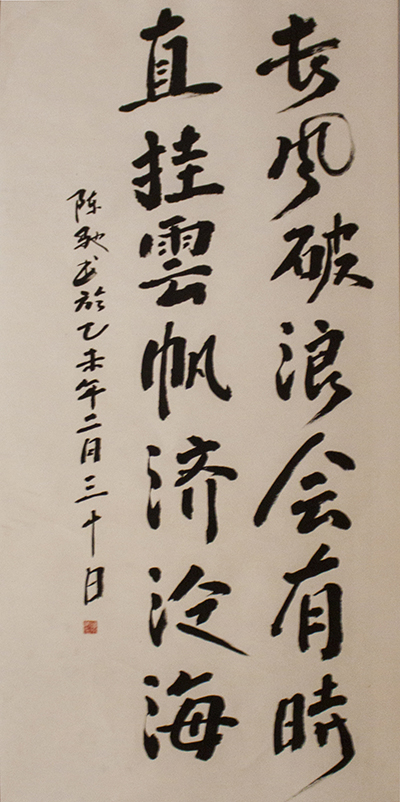 长风破浪会有时
直挂雲帆济沧海
陈驰书於乙未年二月三十日